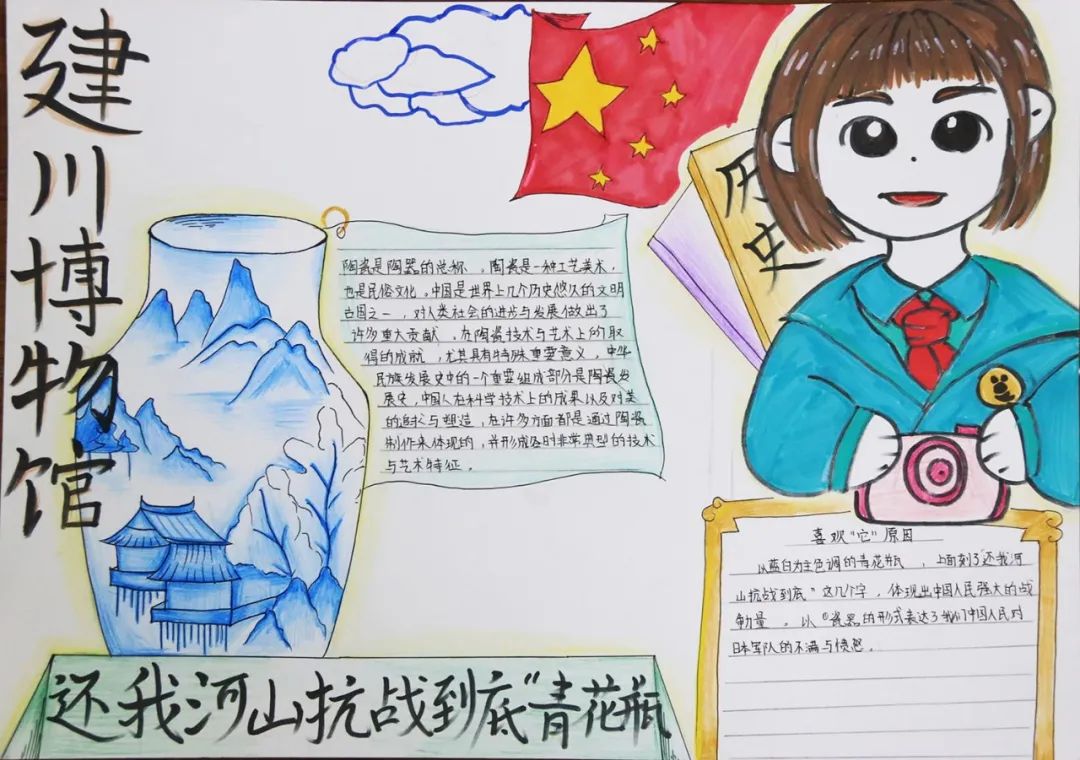 建川博物馆
历史
陶瓷是陶器的总称，陶瓷是一种工艺美术，
也是民俗文化，中国是世界上几个历史悠久的文明
古国之一，对人类社会的进步与发展做出了
许多重大贡献，在陶瓷技术与艺术上的取
得的成就，尤其具有特殊重要意义，中华
民族发展史中的一个重要组成部分是陶瓷发
展史，中国人在科学技术上的成果以及对美
的追求与塑造，在许多方面都是通过陶瓷
制作来体现的，并形成各时非常典型的技术
与艺术特征。
喜欢"它"原因
以蓝白为主色调的青花瓶，上面刻了"还我河
山抗战到底"这几个字，体现出中国人民强大的战
争力量。以瓷器的形式表达了我们中国人民对
日本军队的不满与愤怒。
还我河山抗战到底"青花瓶